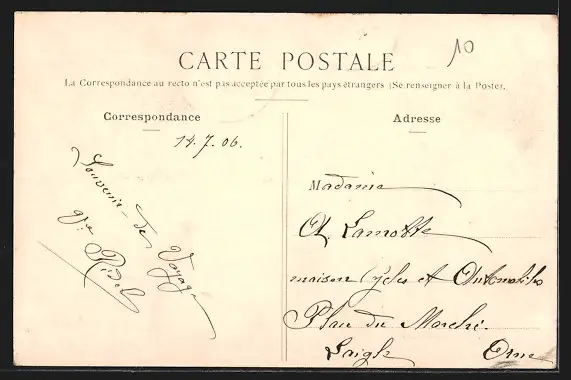 CARTE POSTALE
10
La Correspondance au recto n'est pas acceptée par tous les pays étrangers (Se renseigner à la Poste).
Correspondance
14.7.06.
Souvenir de Voyage
Adresse
Madame
A. Lamotte
maison Cycles et Automobiles
Place du Marché.
Laigle Orne